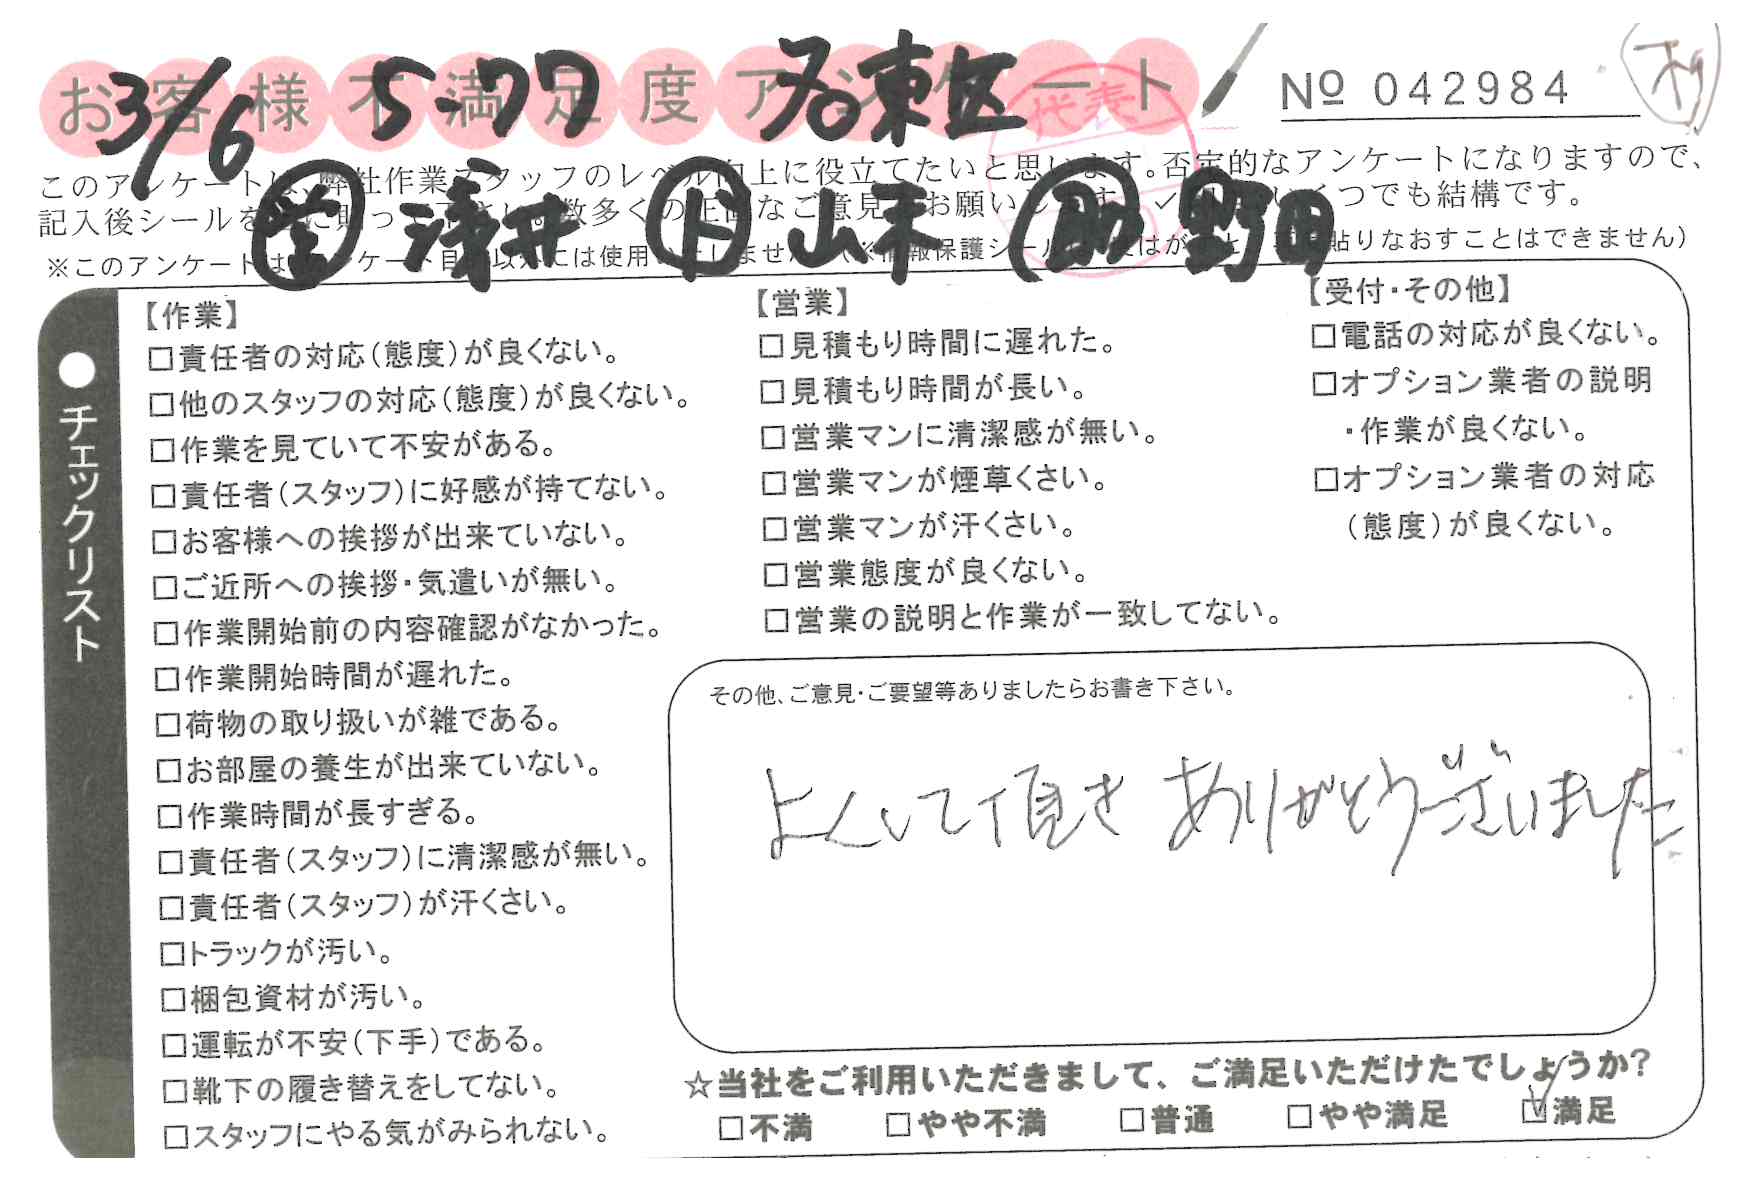 お客様不満足度アンケート
3/6 5-77 名東区
№ 042984
このアンケートは、弊社作業スタッフのレベル向上に役立てたいと思います。否定的なアンケートになりますので、
記入後シールを 貼って 数多くの正直なご意見をお願いします。✓ いくつでも結構です。
浅井 ド 山本 助 野田
※このアンケートは アンケート目的以外には使用いたしません。(※情報保護シール 貼りなおすことはできません)
代表
●チェックリスト
【作業】
□責任者の対応(態度)が良くない。
□他のスタッフの対応(態度)が良くない。
□作業を見ていて不安がある。
□責任者(スタッフ)に好感が持てない。
□お客様への挨拶が出来ていない。
□ご近所への挨拶・気遣いが無い。
□作業開始前の内容確認がなかった。
□作業開始時間が遅れた。
□荷物の取り扱いが雑である。
□お部屋の養生が出来ていない。
□作業時間が長すぎる。
□責任者(スタッフ)に清潔感が無い。
□責任者(スタッフ)が汗くさい。
□トラックが汚い。
□梱包資材が汚い。
□運転が不安(下手)である。
□靴下の履き替えをしてない。
□スタッフにやる気がみられない。
【営業】
□見積もり時間に遅れた。
□見積もり時間が長い。
□営業マンに清潔感が無い。
□営業マンが煙草くさい。
□営業マンが汗くさい。
□営業態度が良くない。
□営業の説明と作業が一致してない。
【受付・その他】
□電話の対応が良くない。
□オプション業者の説明
・作業が良くない。
□オプション業者の対応
(態度)が良くない。
その他、ご意見・ご要望等ありましたらお書き下さい。
よくして頂き ありがとうございました
☆当社をご利用いただきまして、ご満足いただけたでしょうか?
□不満 □やや不満 □普通 □やや満足 ☑満足